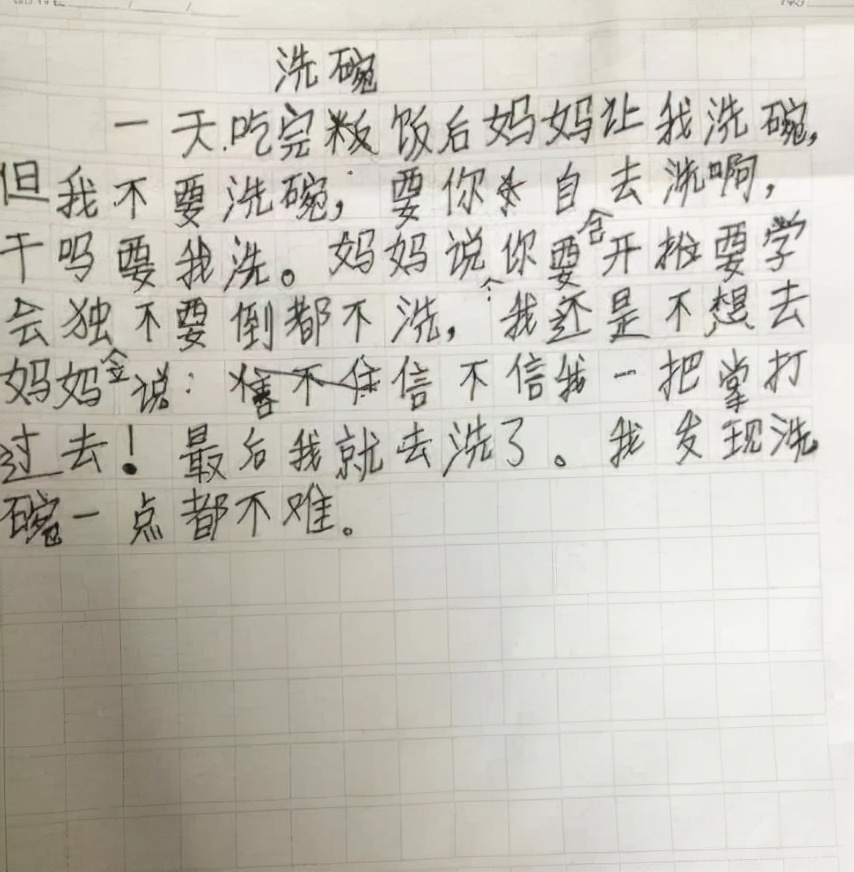 洗碗
一天.吃完饭后妈妈让我洗碗,
但我不要洗碗; 要你自去洗啊,
干吗要我洗。妈妈说你要开始要学
会独不要倒都不洗, 我还是不想去
妈妈说: 信不信我一把掌打
过去! 最后我就去洗了。我发现洗
碗一点都不难。